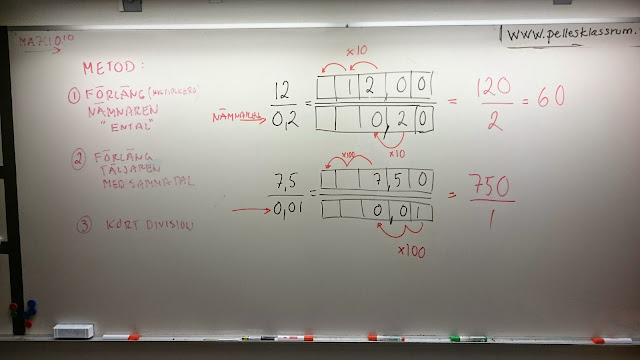 MA7C1010
www.pellesklassrum.
METOD:
① FÖRLÄNG
NÄMNAREN
"ENTAL"
② FÖRLÄNG
TÄLJAREN
MED SAMMA TAL
③ KORT DIVISION
x10
12/0,2 = 1200/0,20 = 120/2 = 60
NÄMNAREN
x10
x100
7,5/0,01 = 7,50/0,01 = 750/1
x100